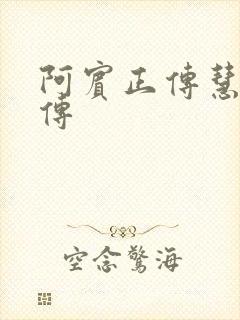 阿賓正傳慧
傳
空念驚海